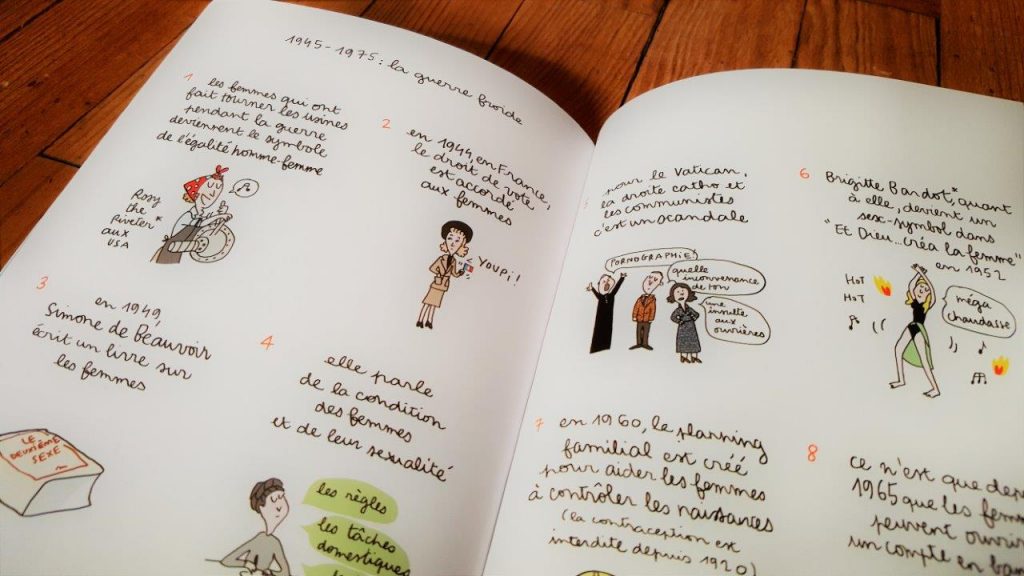 1945-1975: la guerre froide
1
les femmes qui ont
fait tourner les usines
pendant la guerre
deviennent le symbole
de l'égalité homme-femme
Rosy
the
Riveter *
aux
USA
2
en 1944, en France,
le droit de vote
est accordé
aux femmes
YOUPi!
3
en 1949,
Simone de Beauvoir
écrit un livre sur
les femmes
LE
DEUXIÈME
SEXE
4
elle parle
de la condition
des femmes
et de leur sexualité
les règles
les tâches
domestiques
5
pour le Vatican,
la droite catho et
les communistes
c'est un scandale
PORNOGRAPHiE!
quelle
inconvenance
de ton
une
insulte
aux
ouvrières
6
Brigitte Bardot*, quant
à elle, devient un
sex-symbol dans
"Et Dieu... créa la femme"
en 1952
HOT
HOT
méga
chaudasse
7
en 1960, le planning
familial est créé
pour aider les femmes
à contrôler les naissances
(la contraception est
interdite depuis 1920)
8
ce n'est que depu
1965 que les femm
peuvent ouvrir
un compte en ban